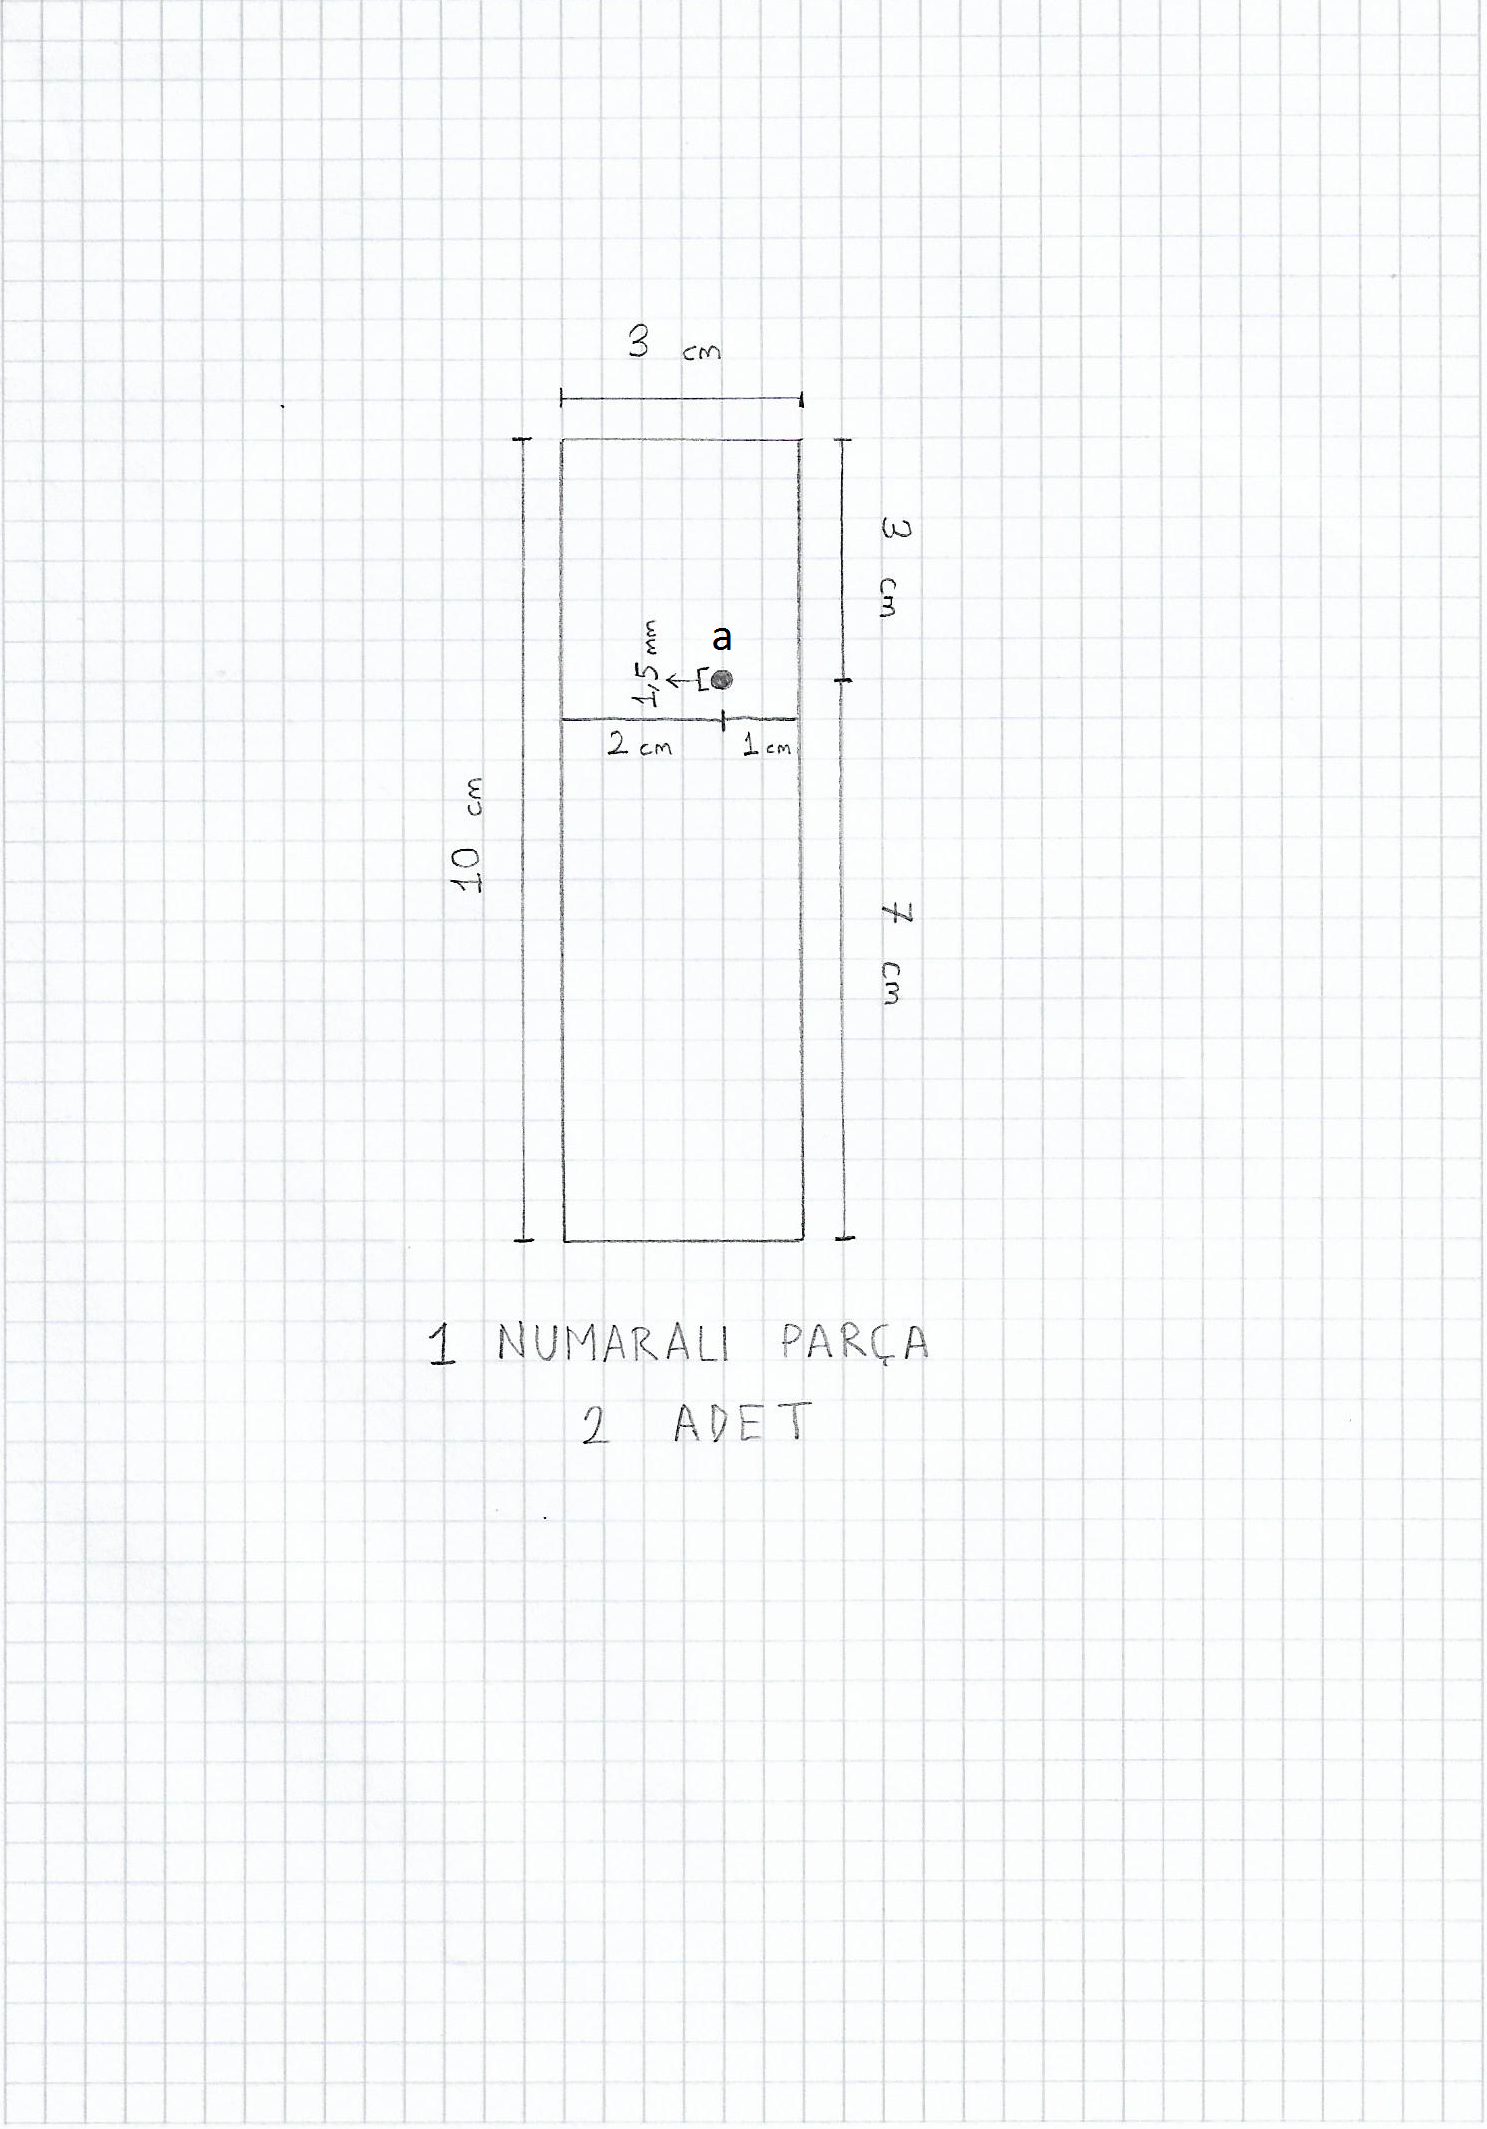 3 cm
3 cm
a
1,5 mm
2 cm
1 cm
10 cm
7 cm
1 NUMARALI PARÇA
2 ADET